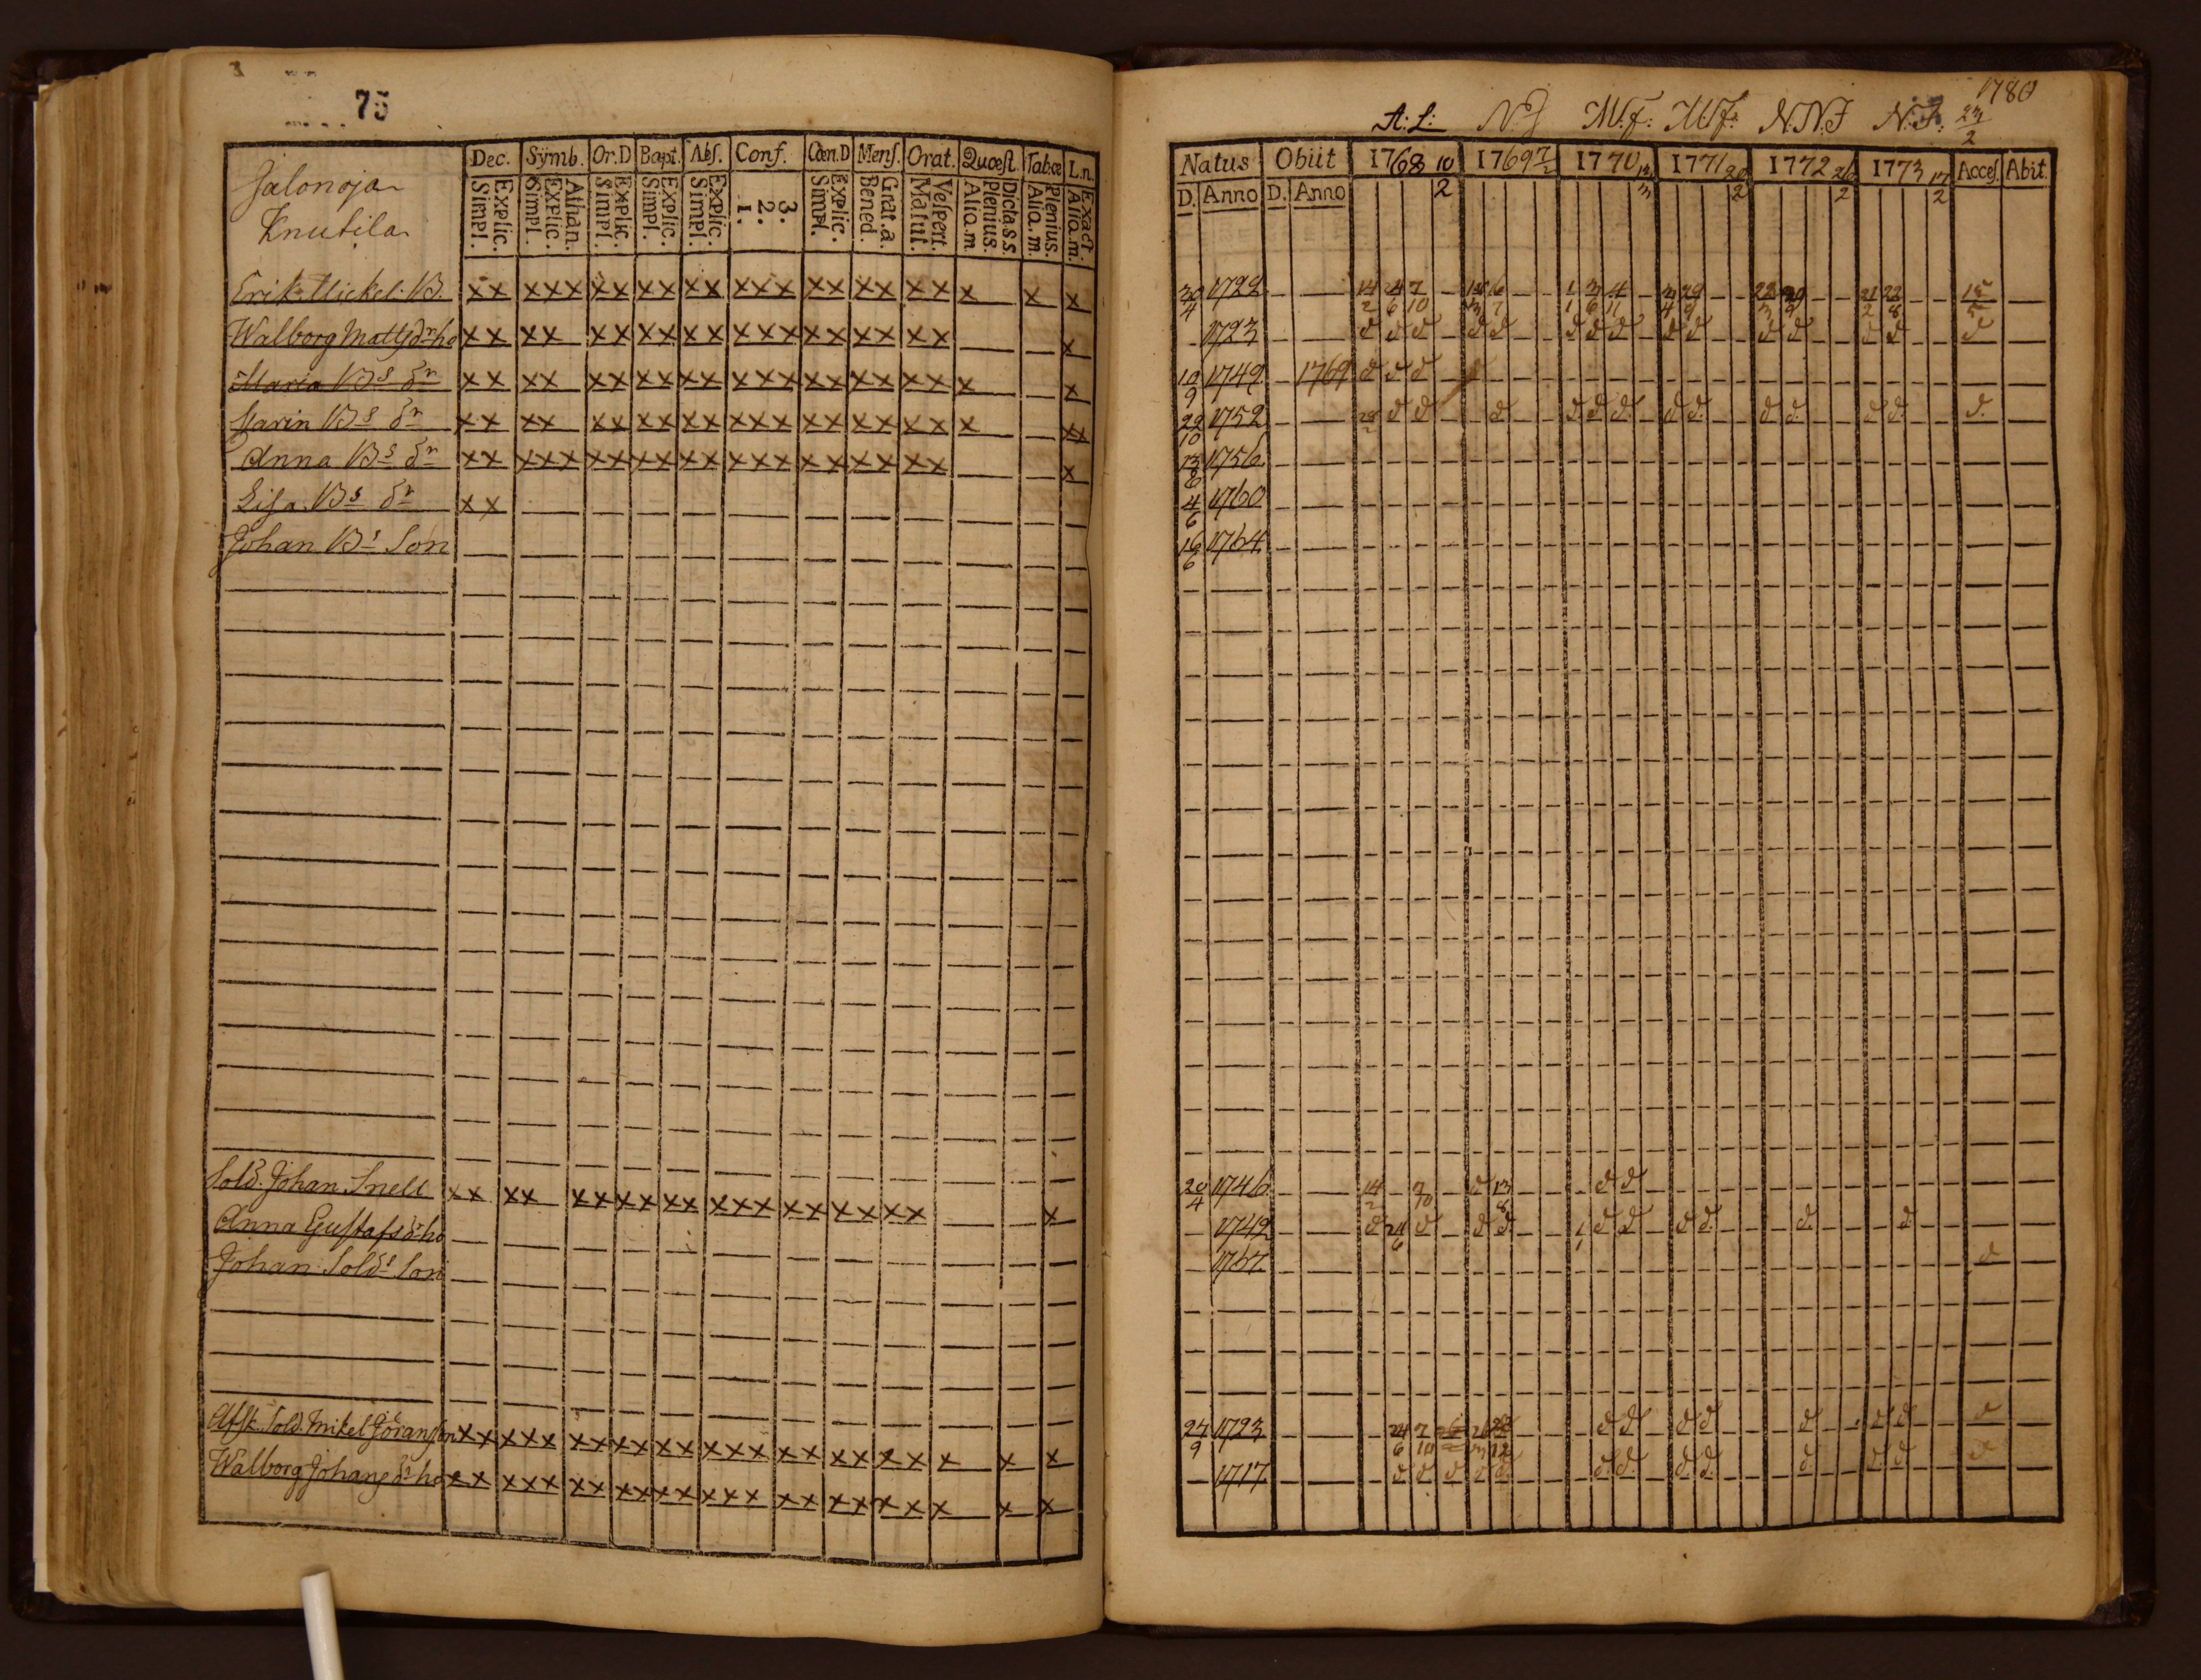 75
Jalonoja
Knutila
Dec. Symb. Or.D Bapt. Abs. Conf. Cœn.D Mens. Orat. Quœst. Tab:œ L.n.
Explic. Simpl. Athan. Explic. Simpl. Explic. Simpl. Explic. Simpl. Explic. Simpl. 3. 2. 1. Explic. Simpl. Grat.a. Bened. Vespert. Matut. Dicta.s.s. Plenius. Alia.m. Plenius. Alia.m. Exact. Alia.m.
Erik Mickel. B. xx xxx xx xx xx xxx xx xx xx x x x
Walborg Matts dr ho xx xx xx xx xx xxx xx xx xx x
Maria Bs dr xx xx xx xx xx xxx xx xx xx x x
Karin Bs dr xx xx xx xx xx xxx xx xx xx x xx
Anna Bs dr xx xxx xx xx xx xxx xx xx xx x
Lisa Bs dr xx
Johan Bs Son
Sold. Johan Snell xx xx xx xx xx xxx xx xx xx x
Anna Gustafs dr ho
Johan Solds Son
Afsk. Sold. Mikel Göranson xx xxx xx xx xx xxx xx xx xx x x x
Walborg Johans dr ho xx xxx xx xx xx xxx xx xx xx x x x
1780
A:L: N.J M.f: M.f: N.N.J N.J. 23/2
Natus Obiit 1768 10/2 1769 7/2 1770 1771 20/2 1772 26/2 1773 17/2 Acces. Abit.
D. Anno D. Anno
30/4 1722 14/2 24/6 7/10 1/1 3/6 4/11 3/4 29/9 21/2 22/8 15/5
1723 d d d d d d d d d d d d d d d
10/9 1749 1769 d d d
22/10 1752 28/2 d d d d d d d d d d d d d
13/8 1756
4/6 1760
16/6 1764
20/4 1746 14/2 7/10 d 13/8 d d
1742 d 24/6 d d d 1/1 d d d d d d
1767 d
24/9 1723 24/6 7/10 d d d d d d d d
1717 d d d d d d d d d d d d d